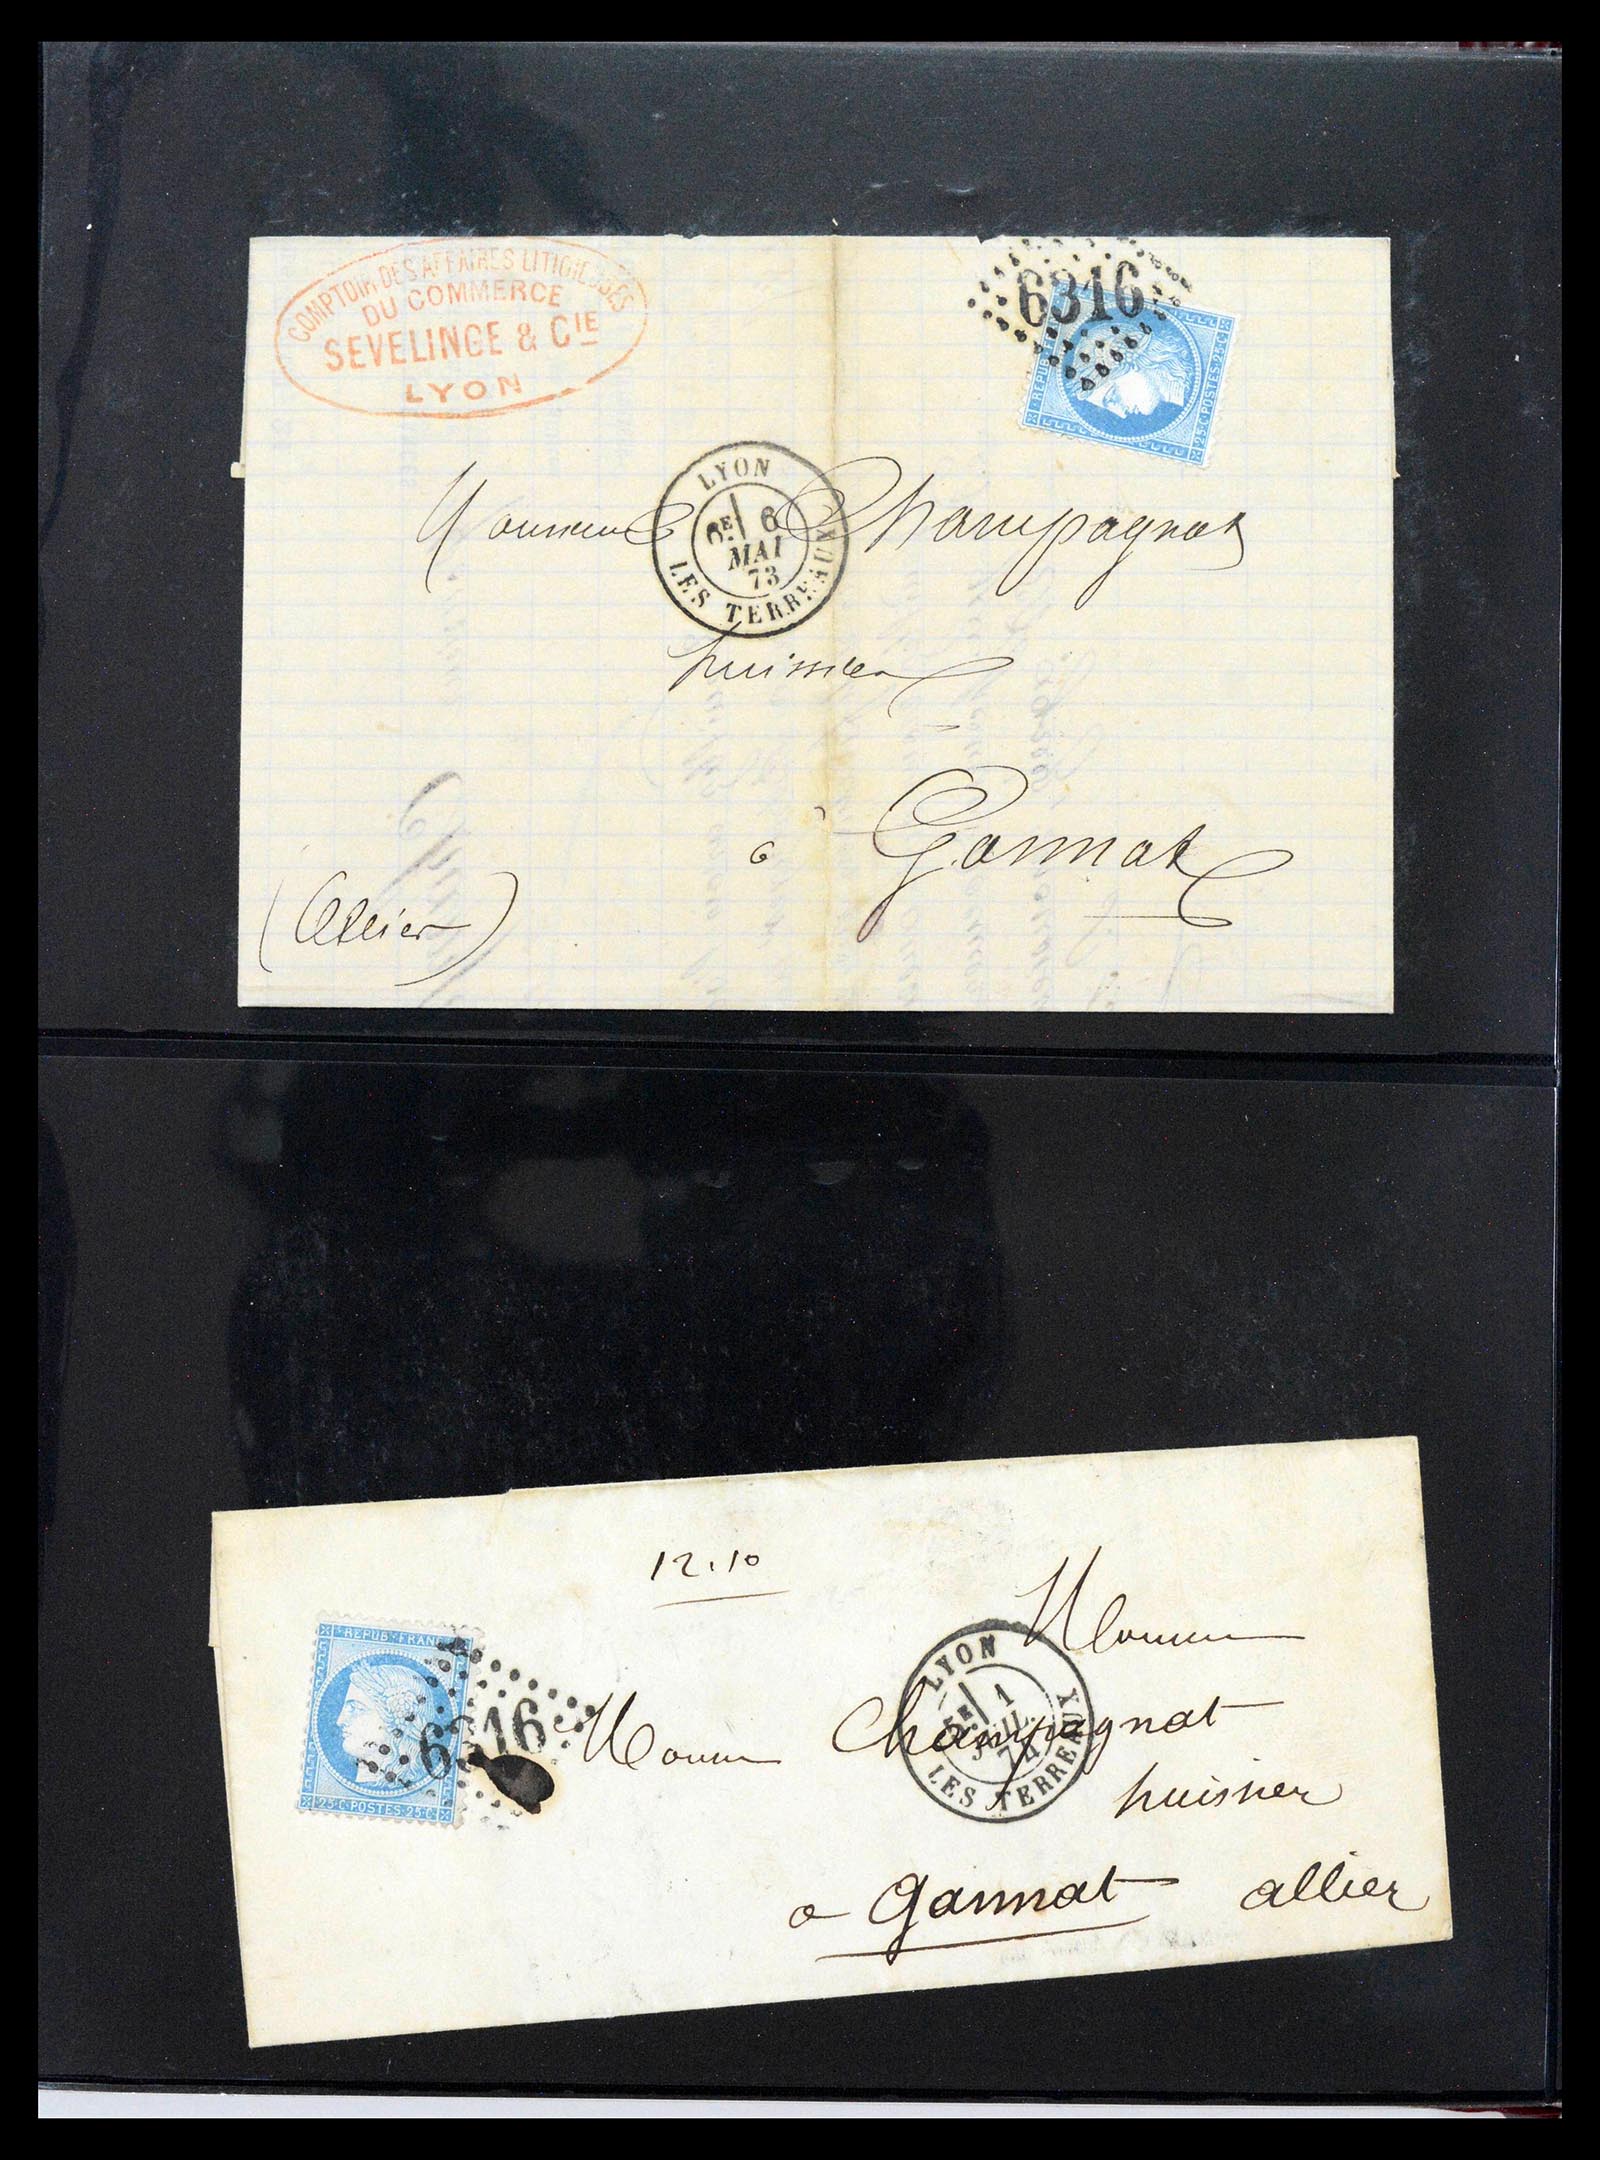 COMPTOIR DES AFFAIRES LITIGIEUSES
DU COMMERCE
SEVELINGE & CIE
LYON
6316
REPUB
25·C·POSTES·25·C
LYON
6E 6
MAI
73
LES TERREAUX
Monsieur Champagnat
huissier
à Gannat
(Allier)
12.10
REPUB·FRANC
25·C·POSTES·25·C
6316
LYON
5E 1
JUIL.
74
LES TERREAUX
Monsieur
Monsieur Champagnat
huissier
a Gannat allier